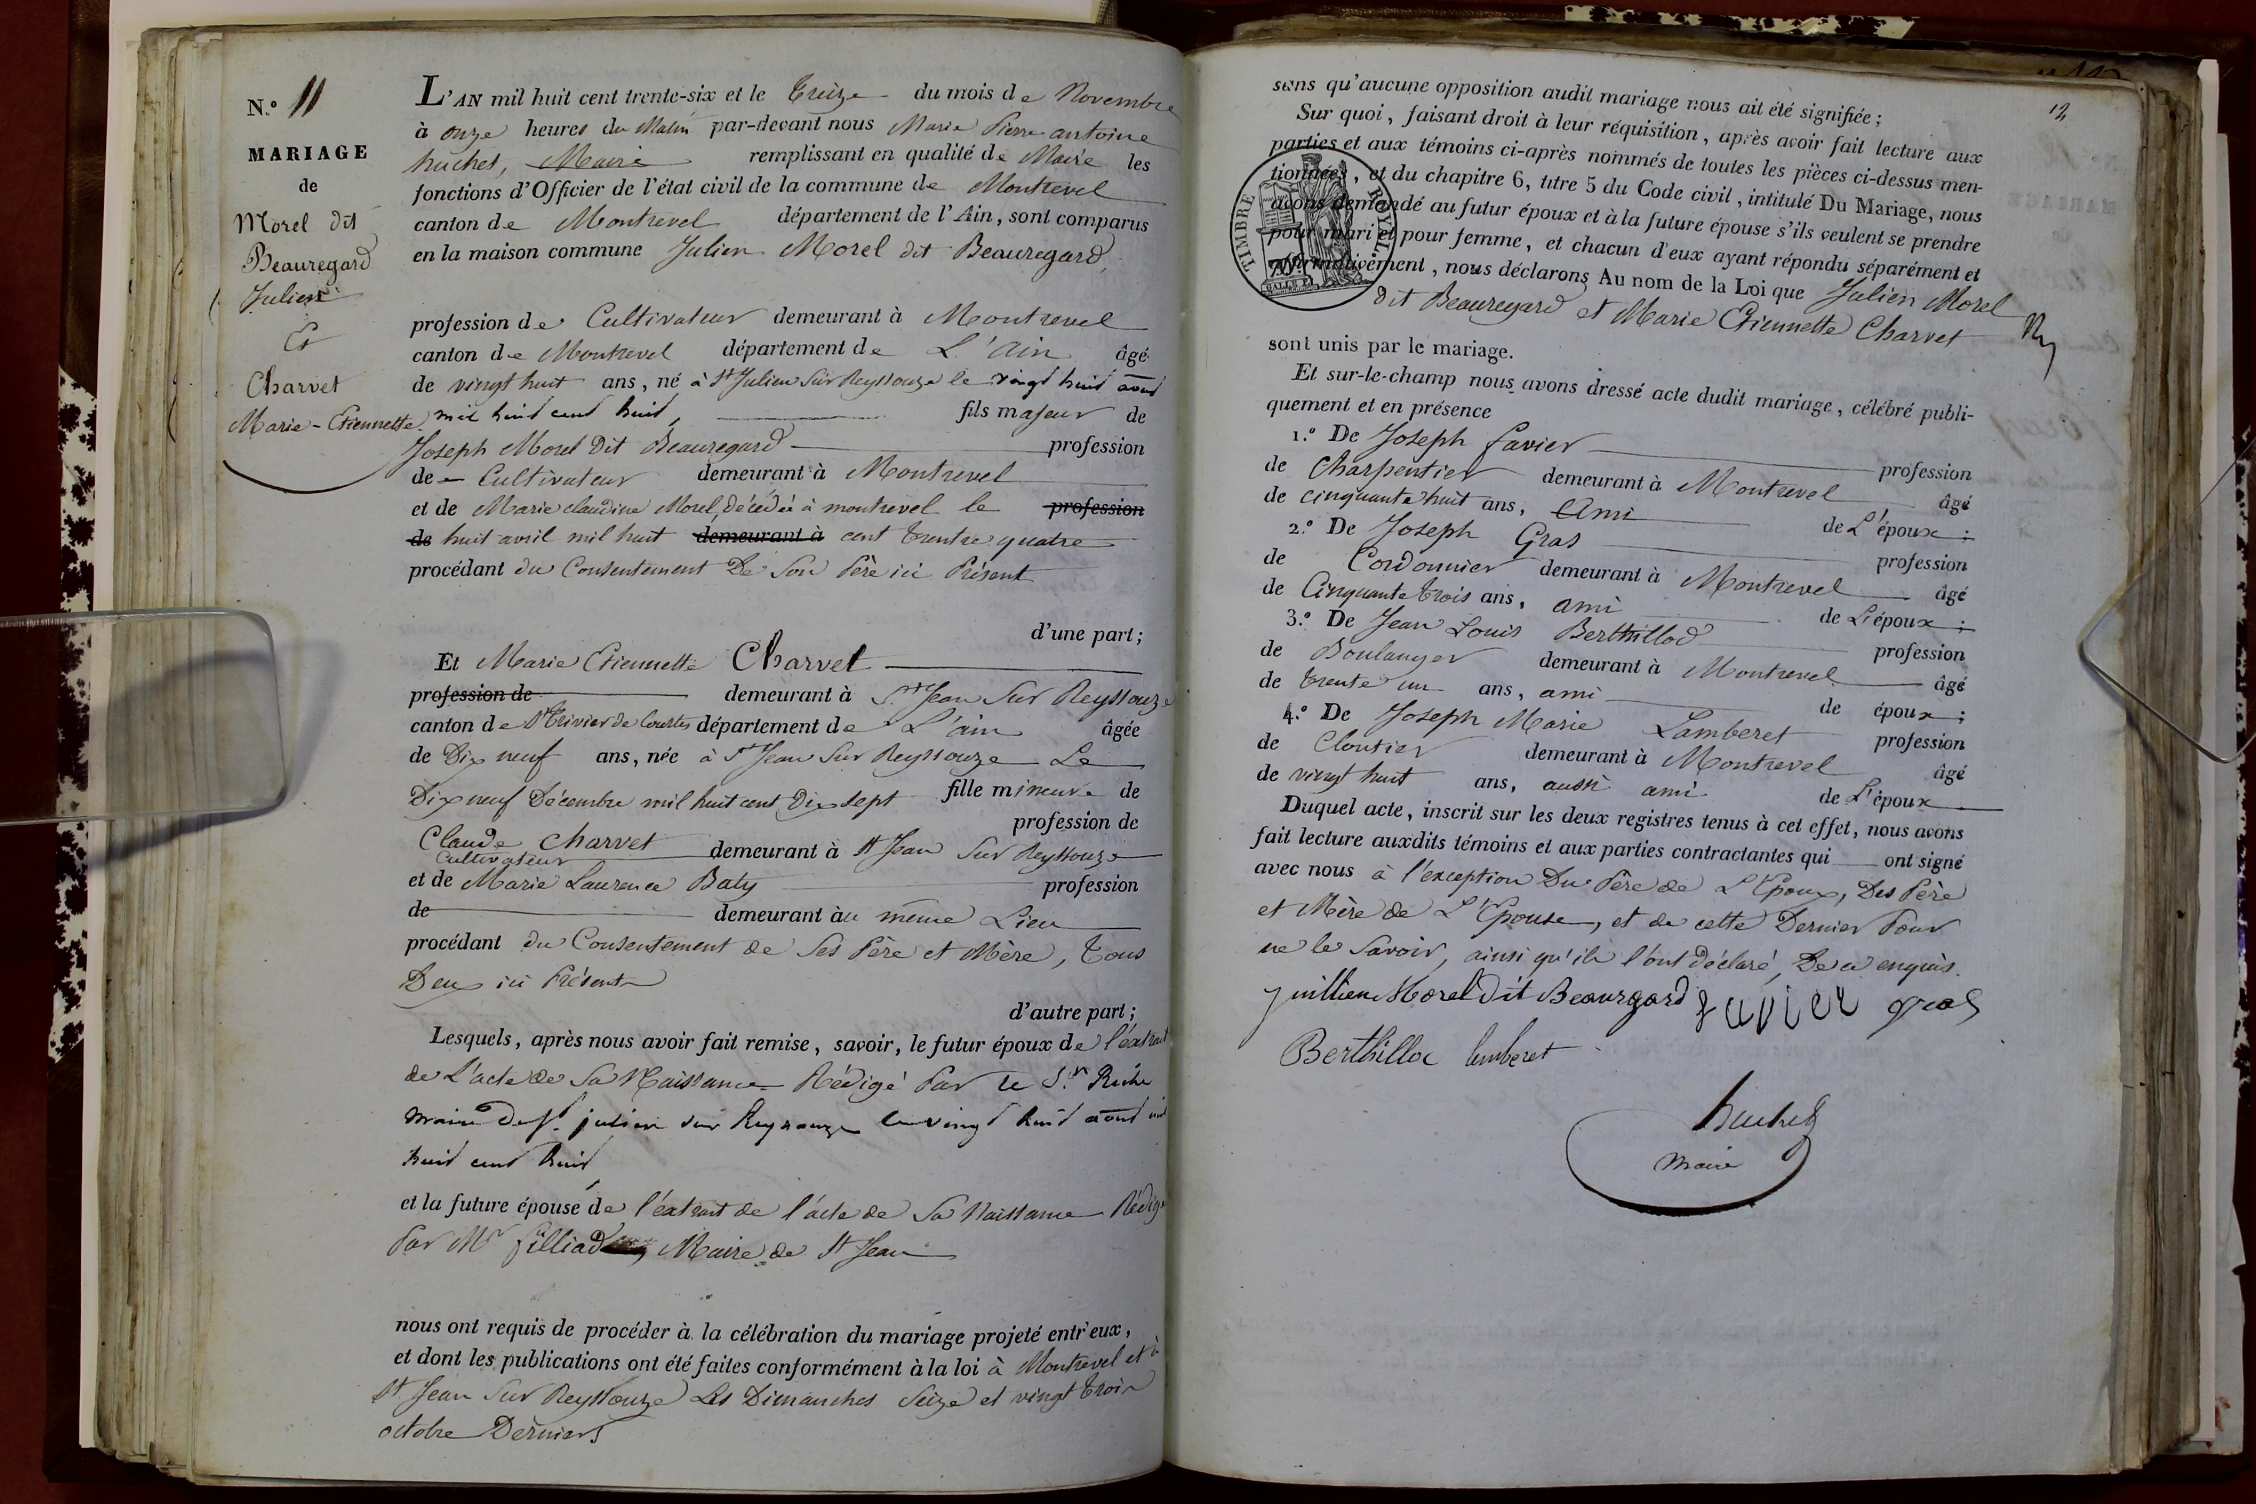 N.º 11
MARIAGE
de
Morel dit
Beauregard
Julien
Et
Charvet
Marie-Etiennette
L'AN mil huit cent trente-six et le Treize du mois de Novembre
à onze heures du Matin par-devant nous Marie Pierre antoine
huchet, Maire remplissant en qualité de Maire les
fonctions d'Officier de l'état civil de la commune de Montrevel
canton de Montrevel département de l'Ain, sont comparus
en la maison commune Julien Morel dit Beauregard,
profession de Cultivateur demeurant à Montrevel
canton de Montrevel département de L'Ain âgé
de vingt huit ans, né à St Julien Sur Reyssouze le vingt huit aout
mil huit cent huit, fils majeur de
Joseph Morel Dit Beauregard profession
de Cultivateur demeurant à Montrevel
et de Marie claudine Morel, décédée à montrevel le profession
de huit avril mil huit demeurant à cent Trente quatre
procédant du Consentement De Son Père ici Présent
d'une part;
Et Marie Etiennette Charvet
profession de demeurant à St Jean Sur Reyssouze
canton de St Trivier de Courtes département de L'ain âgée
de Dix neuf ans, née à St Jean Sur Reyssouze Le
Dix neuf Décembre mil huit cent Dix sept fille mineure de
Claude Charvet profession de
Cultivateur demeurant à St Jean Sur Reyssouze
et de Marie Laurence Baty profession
de demeurant àu même Lieu
procédant du Consentement de Ses Père et Mère, Tous
Deux ici Présents
d'autre part;
Lesquels, après nous avoir fait remise, savoir, le futur époux de l'éxtrait
de L'acte de Sa Naissance Rédigé Par le S.r
maire de St. julien sur Reyssouze le vingt huit aout mil
huit cent huit
et la future épouse de l'éxtrait de l'acte de Sa Naissance Rédigé
Par Mr filliad Maire de St Jean
nous ont requis de procéder à la célébration du mariage projeté entr'eux,
et dont les publications ont été faites conformément à la loi à Montrevel et à
St Jean Sur Reyssouze Les Dimanches Seize et vingt Trois
octobre Derniers
12
sans qu'aucune opposition audit mariage nous ait été signifiée;
Sur quoi, faisant droit à leur réquisition, après avoir fait lecture aux
parties et aux témoins ci-après nommés de toutes les pièces ci-dessus men-
tionnées, et du chapitre 6, titre 5 du Code civil, intitulé Du Mariage, nous
avons demandé au futur époux et à la future épouse s'ils veulent se prendre
pour mari et pour femme, et chacun d'eux ayant répondu séparément et
affirmativement, nous déclarons Au nom de la Loi que Julien Morel
dit Beauregard et Marie Etiennette Charvet
TIMBRE ROYAL.
sont unis par le mariage.
Et sur-le-champ nous avons dressé acte dudit mariage, célébré publi-
quement et en présence
1.º De Joseph favier profession
de Charpentier demeurant à Montrevel âgé
de cinquante huit ans, Ami de L'époux;
2.º De Joseph Gras profession
de Cordonnier demeurant à Montrevel âgé
de Cinquante Trois ans, ami de L'époux;
3.º De Jean Louis Berthillod profession
de Boulanger demeurant à Montrevel âgé
de Trente un ans, ami de époux;
4.º De Joseph Marie Lamberet profession
de Cloutier demeurant à Montrevel âgé
de vingt huit ans, aussi ami de L'époux
Duquel acte, inscrit sur les deux registres tenus à cet effet, nous avons
fait lecture auxdits témoins et aux parties contractantes qui ont signé
avec nous à l'éxception Du Père de L'Epoux, Des Père
et Mère de L'Epouse, et de cette Dernier Pour
ne le Savoir, ainsi qu'ils l'ont déclaré, De ce enquis.
juillien Morel Dit Beaurgard favier gras
Berthilloc lamberet
huchet
maire